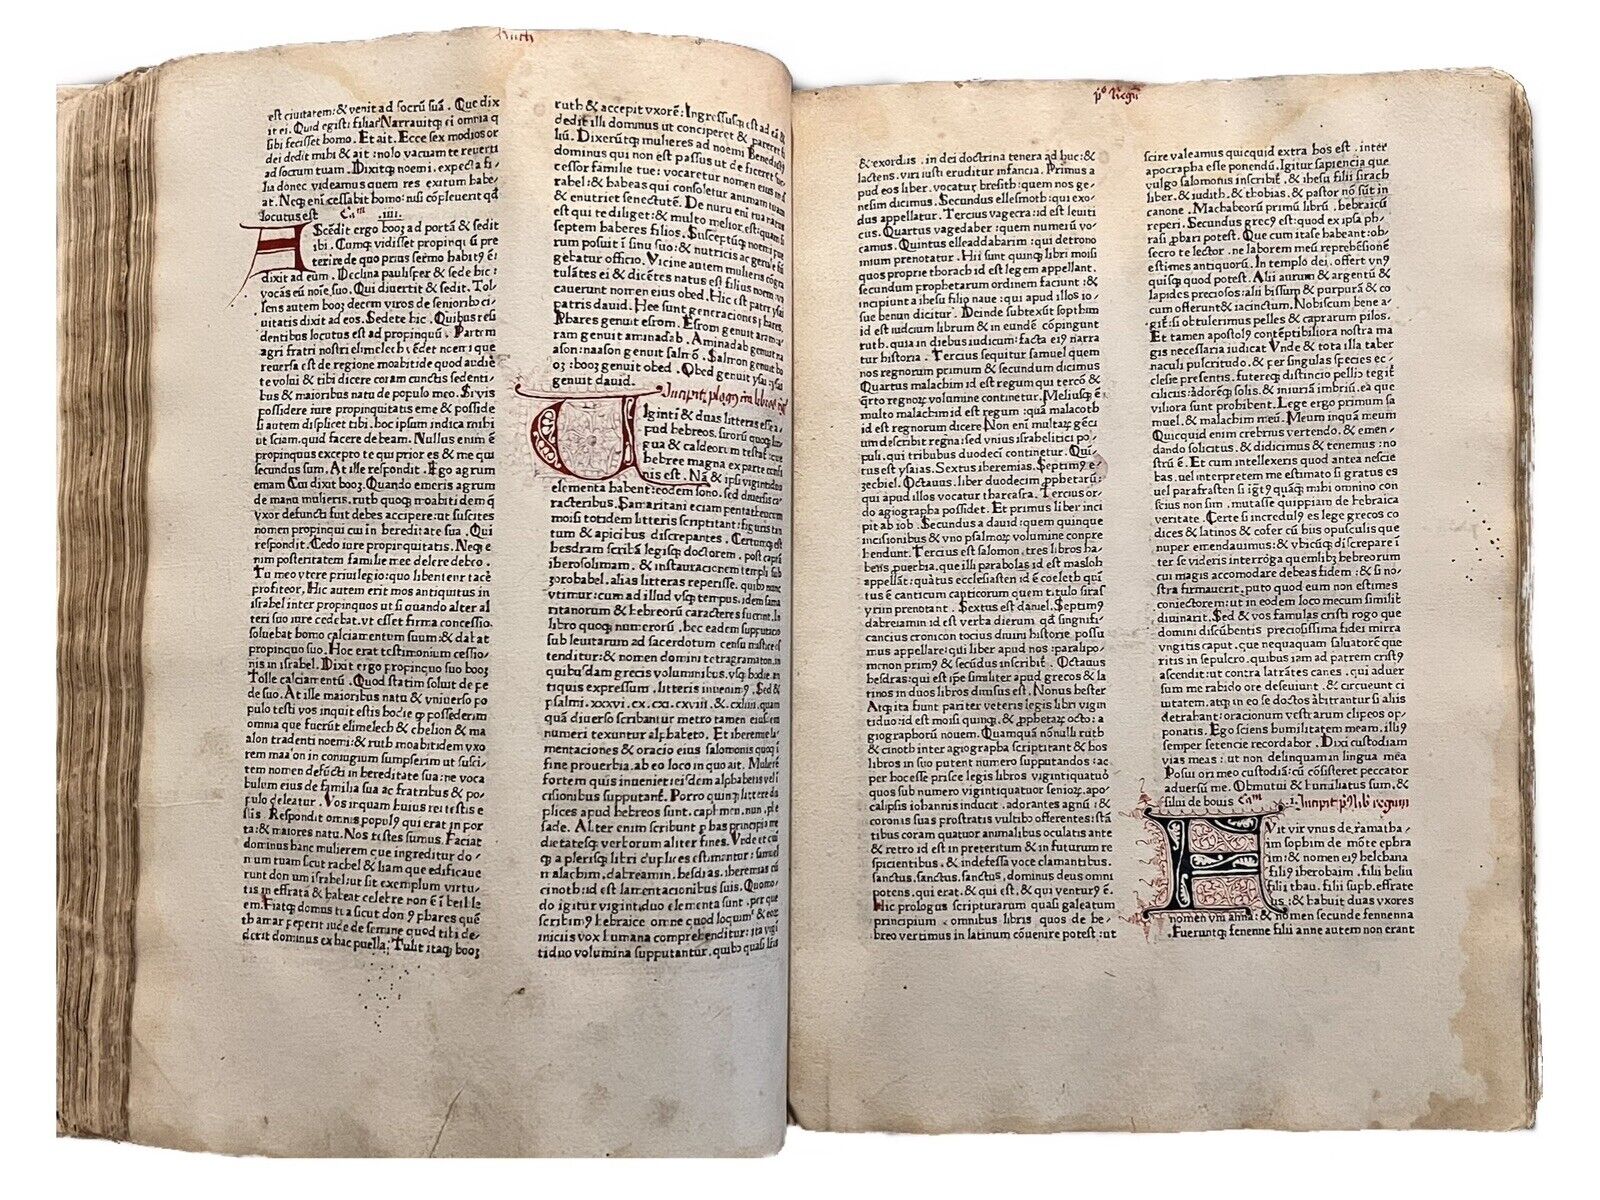 Ruth
est ciuitatem: & venit ad socrū suā. Que dix
it ei. Quid egisti filia? Narrauitq; ei omnia q
sibi fecisset homo. Et ait. Ecce sex modios or
dei dedit mihi & ait: nolo vacuam te reuerti
ad socrum tuam. Dixitq; noemi. expecta fi-
lia donec videamus quem res exitum habe-
at. Neq; eni cessabit homo: nisi cōpleuerit qd
locutus est Cam .iiii.
AScēdit ergo booz ad portā & sedit
ibi. Cumq; vidisset propinqū pre
terire de quo prius sermo habit9 ē:
dixit ad eum. Declina paulisper & sede hic:
vocās eū noīe suo. Qui diuertit & sedit. Tol-
lens autem booz decem viros de seniorib ci-
uitatis dixit ad eos. Sedete hic. Quibus resi
dentibus locutus est ad propinquū. Partem
agri fratri nostri elimelech vēdet noemi que
reuersa est de regione moabitide quod audire
te volui & tibi dicere coram cunctis sedenti-
bus & maioribus natu de populo meo. Si vis
possidere iure propinquitatis eme & posside
si autem displicet tibi. hoc ipsum indica mihi
ut sciam. quid facere debeam. Nullus enim ē
propinquus excepto te qui prior es & me qui
secundus sum. At ille respondit. Ego agrum
emam Cui dixit booz. Quando emeris agrum
de manu mulieris. ruth quoq; moabitidem que
vxor defuncti fuit debes accipere: ut suscites
nomen propinqui tui in hereditate sua. Qui
respondit. Cedo iure propinquitatis. Neq; e
nim posteritatem familie mee delere debeo.
Tu meo vtere priuilegio: quo libenter me carere
profiteor, Hic autem erit mos antiquitus in
israhel inter propinquos ut si quando alter al
teri suo iure cedebat. vt esset firma concessio.
soluebat homo calciamentum suum: & dabat
propinquo suo. Hoc erat testimonium cessio-
nis in israhel. Dixit ergo propinquo suo booz
Tolle calciamentū. Quod statim soluit de pe
de suo. At ille maioribus natu & vniuerso po
pulo testi vos inquit estis hodie q possederim
omnia que fuerūt elimelech & chelion & ma
alon tradenti noemi: & ruth moabitidem vxo
rem maaon in coniugium sumpserim ut susci-
tem nomen defūcti in hereditate sua: ne voca
bulum eius de familia sua ac fratribus & po-
pulo deleatur. Vos inquam huius rei testis e
stis. Respondit omnis popul9 qui erat in por
ta: & maiores natu. Nos testes sumus. Faciat
dominus hanc mulierem que ingreditur do-
mum tuam sicut rachel & liam que edificaue
runt domum israhel: ut sit exemplum virtu-
tis in effrata & habeat celebre nomē ī bethlee
em. Fiatq; domus tua sicut domus phares quē
thamar peperit iude de semine quod tibi de-
derit dominus ex hac puella. Tulit itaq; booz
ruth & accepit vxorē: Ingressusq; est ad eā &
dedit illi dominus ut conciperet & pareret fi
liū. Dixerūtq; mulieres ad noemi Benedict9
dominus qui non est passus ut deficeret suc-
cessor familie tue: vocaretur nomen eius in is
rahel: & habeas qui consoletur animam tuam
& enutriet senectutē. De nuru eni tua natus
est qui te diliget: & multo melior est: quam si
septem haberes filios. Susceptūq; noemi pue
rum posuit ī sinu suo: & nutricis ac gerule fun
gebatur officio. Vicine autem mulieres cōgra
tulātes ei & dicētes natus est filius noemi vo
cauerunt nomen eius obed. Hic est pater ysai
patris dauid. Hee sunt generaciones phares.
Phares genuit esrom. Esrom genuit aram. a-
ram genuit aminadab. Aminadab genuit na
ason: naason genuit salmō. Salmon genuit bo
oz: booz genuit obed. Obed genuit ysai: ysai
genuit dauid.
Incipit plogus in libros regū
VIginti & duas litteras esse a-
pud hebreos. sirorū quoq; lin
gua & caldeorum testatur: que
hebree magna ex parte confi
nis est. Nā & ipsi vigintiduo
elementa habent: eodem sono. sed diuersis ca
racteribus. Samaritani eciam pentatheucum
moisi totidem litteris scriptitant: figuris tan
tum & apicibus discrepantes. Certumq; est
hesdram scribā legisq; doctorem. post captā
iherosolimam. & instauracionem templi sub
zorobabel. alias litteras reperisse. quibo nunc
vtimur: cum ad illud vsq; tempus. idem sama
ritanorum & hebreorū caracteres fuerint. In
libro quoq; numerorū. hec eadem supputacio
sub leuitarum ad sacerdotum censu mistice o-
stenditur: & nomen domini tetragramaton. in
quibusdam grecis voluminibus. vsq; hodie. an
tiquis expressum. litteris inuenim9 Sed &
psalmi. xxxvi. cx. cxi. cxviii. & cxliiii. quam
quā diuerso scribantur metro tamen eiusdem
numeri texuntur alphabeto. Et iheremie la-
mentaciones & oracio eius salomonis quoq; i
fine prouerbia. ab eo loco in quo ait. Mulierē
fortem quis inueniet: eisdem alphabetis vel i
cisionibus supputant. Porro quinq; littere du
plices apud hebreos sunt. caph. mem. nun. phe
sade. Aliter enim scribunt p has principia me
dietatesq; verborum aliter fines. Vnde et quin
q a plerisq; libri duplices estimantur: samuel
malachim. dabreamin. hesdras. iheremias cū
cinoth: id est lamentacionibus suis. Quomo-
do igitur vigintiduo elementa sunt. per que
scribim9 hebraice omne quod loquim & eoz
iniciis vox humana comprehenditur: ita vigi
tiduo volumina supputantur. quibo quasi litteris
p9 Regū
& exordiis. in dei doctrina tenera ad huc: &
lactens. viri iusti eruditur infancia. Primus a
pud eos liber. vocatur bresith: quem nos ge-
nesim dicimus. Secundus ellesmoth: qui exo-
dus appellatur. Tercius vagecra: id est leuiti
cus. Quartus vagedaber: quem numerū vo-
camus. Quintus elleaddabarim: qui detrono
mium prenotatur. Hii sunt quinq; libri moisi
quos proprie thorach id est legem appellant.
Secundum prophetarum ordinem faciunt: &
incipiunt a ihesu filio naue: qui apud illos io-
sue benun dicitur. Deinde subtexūt sopthim
id est iudicum librum & in eundē cōpingunt
ruth. quia in diebus iudicum: facta ei9 narra
tur historia. Tercius sequitur samuel quem
nos regnorum primum & secundum dicimus
Quartus malachim id est regum qui terciō &
qrto regnoz volumine continetur. Meliusq; ē
multo malachim id est regum: quā malacoth
id est regnorum dicere Non eni multaz gēci
um describit regna: sed vnius israhelitici po-
puli. qui tribubus duodeci continetur. Qui-
tus est ysaias. Sextus iheremias. Septim9 e-
zechiel. Octauus. liber duodecim pphetarū:
qui apud illos vocatur thareasra. Tercius or-
do agiographa possidet. Et primus liber inci
pit ab iob. Secundus a dauid: quem quinque
incisionibus & vno psalmoz volumine conpre
hendunt. Tercius est salomon. tres libros ha-
bens. puerbia. que illi parabolas id est masloth
appellāt: quātus ecclesiasten id ē coeleth qui
tus ē canticum canticorum quem titulo siras
yrim prenotant. Sextus est daniel. Septim9
dabreiamin id est verba dierum qd signifi-
cancius cronicon tocius diuini historie possu
mus appellare: qui liber apud nos: paralipo-
menon prim9 & secūdus inscribit. Octauus
hesdras: qui et ipse similiter apud grecos & la
tinos in duos libros diuisus est. Nonus hester
Atq; ita fiunt pariter veteris legis libri vigin
tiduo: id est moisi quinq;. & pphetaz octo: a
giographorū nouem. Quamquā nōnulli ruth
& cinoth inter agiographa scriptitant & hos
libros in suo putent numero supputandos: ac
per hoc esse prisce legis libros vigintiquatuor
quos sub numero vigintiquatuor senioz. apo-
calipsis iohannis inducit. adorantes agnū: &
coronis suas prostratis vultibo offerentes: stā
tibus coram quatuor animalibus oculatis ante
& retro id est in preteritum & in futurum re
spicientibus. & indefessa voce clamantibus.
sanctus. sanctus. sanctus. dominus deus omni
potens. qui erat. & qui est. & qui ventur9 ē.
Hic prologus scripturarum quasi galeatum
principium. omnibus libris quos de he-
breo vertimus in latinum cōuenire potest: ut
scire valeamus quicquid extra hos est. inter
apocrapha esse ponendū. Igitur sapiencia que
vulgo salomonis inscribit. & ihesu filii sirach
liber. & iudith. & thobias. & pastor nō sūt in
canone. Machabeorū primū librū. hebraicū
reperi. Secundus grec9 est: quod ex ipsa ph-
rasi. pbari potest. Que cum ita se habeant: ob-
secro te lector. ne laborem meū reprehēsionē
estimes antiquorū. In templo dei. offert vn9
quisq; quod potest. Alii aurum & argentū &
lapides preciosos: alii bissum & purpurā & co
cum offerunt: & iacinctum. Nobiscum bene a-
git: si obtulerimus pelles & caprarum pilos.
Et tamen apostol9 contēptibiliora nostra ma
gis necessaria iudicat Vnde & tota illa taber
naculi pulcritudo. & per singulas species ec-
clesie presentis. futureq; distinctio pellib tegit
& cilicus: ādorēq; solis. & iniuriā imbriū. ea que
viliora sunt prohibent. Lege ergo primum sa
muel. & malachim meū. Meum inquā meum
Quicquid enim crebrius vertendo. & emen-
dando solicitus. & didicimus & tenemus: no-
strū ē. Et cum intellexeris quod antea nescie-
bas. uel interpretem me estimato si gratus es
uel parafrasten si īgrat9 quāq; mihi omnino con
scius non sim. mutasse quippiam de hebraica
veritate. Certe si incredul9 es lege grecos co
dices & latinos & cofer cū hiis opusculis que
nuper emendauimus: & vbicūq; discrepare ī
ter se videris interroga quemlibz hebreorum
cui magis accomodare debeas fidem: & si no-
stra firmauerit. puto quod eum non estimes
coniectorem: ut in eodem loco mecum similit
diuinarit. Sed & vos famulas cristi rogo que
domini discūbentis preciosissima fidei mirra
vngitis caput. que nequaquam saluatorē que
ritis in sepulcro. quibus iam ad patrem crist9
ascendit: ut contra latrātes canes. qui aduer
sum me rabido ore deseuiunt. & circueunt ci
uitatem. atq; in eo se doctos abitrantur si aliis
detrahant: oracionum vestrarum clipeos op-
ponatis. Ego sciens humilitatem meam. illi9
semper setencie recordabor. Dixi custodiam
vias meas: ut non delinquam in lingua mea
Posui ori meo custodiā: cū cōsisteret peccator
aduersū me. Obmutui & humiliatus sum. &
silui de bonis Cam .i. Incipit p9 lib regum
FVit vir vnus de ramatha-
im sophim de mōte ephra
im: & nomen ei9 helchana
fili9 iherobaim. filii heliu
filii thau. filii suph. effrate
us: & habuit duas vxores
nomen vni anna: & nomen secunde fennenna
. Fueruntq; fenenne filii anne autem non erant